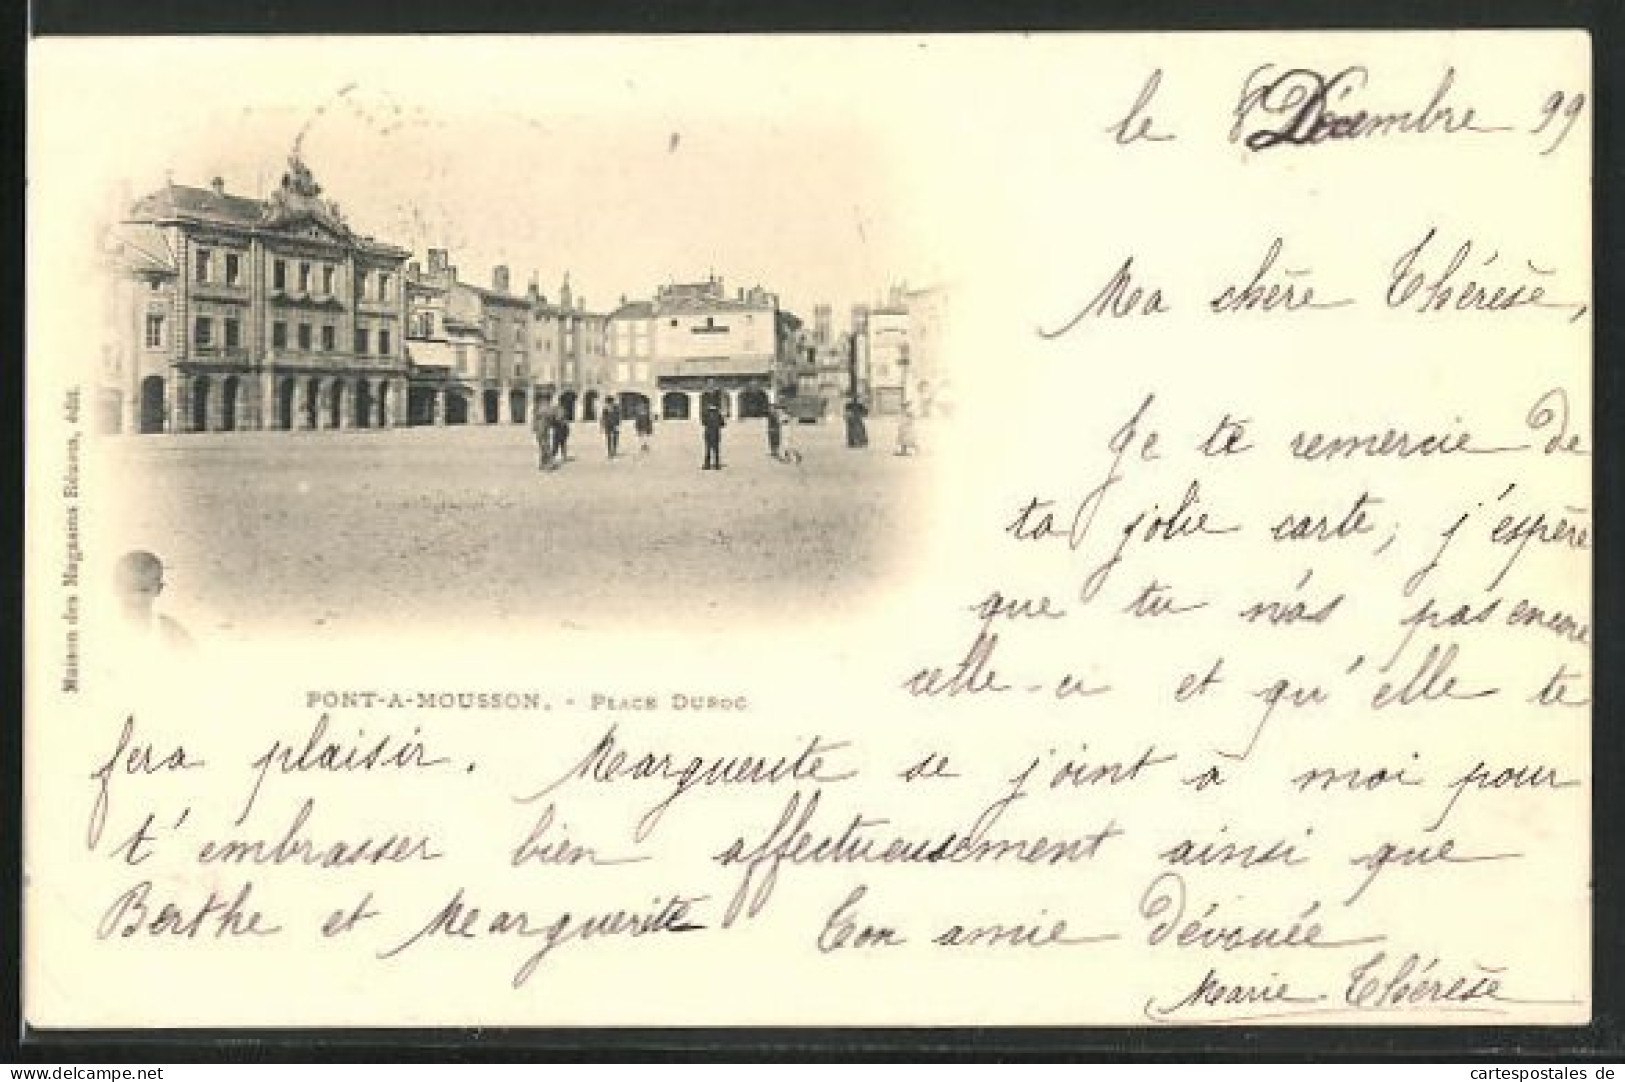 le 8 Décembre 99
Ma chère Thérèse,
Je te remercie de
ta jolie carte, j'espère
que tu n'as pas encore
celle-ci et qu'elle te
fera plaisir. Marguerite se joint à moi pour
t'embrasser bien affectueusement ainsi que
Berthe et Marguerite Ton amie dévouée
Marie Thérèse
PONT-A-MOUSSON. - PLACE DUROC
Maison des Magasins Réunis, édit.
www.cartespostales.de